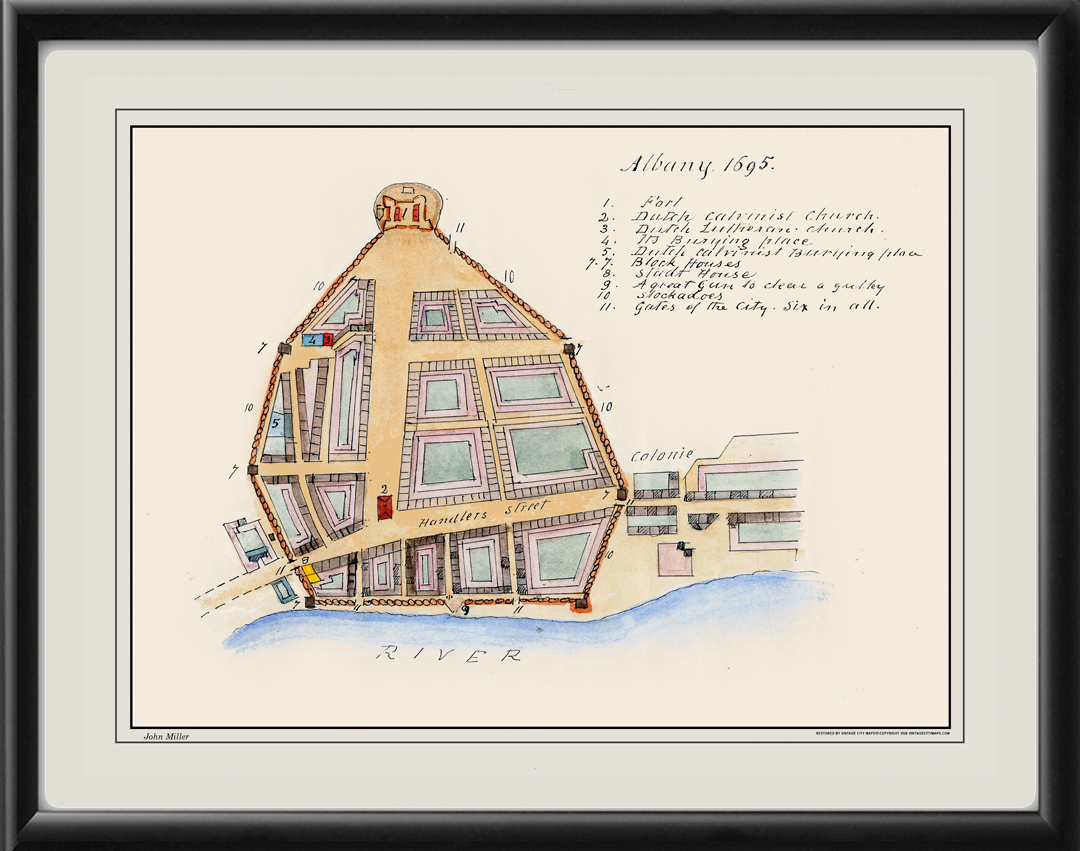 Albany. 1695.
1. Fort
2. Dutch Calvinist Church.
3. Dutch Lutheran. Church.
4. Its Burying place
5. Dutch Calvinist Burying place
7.7. Block Houses
8. Stadt House
9. A great Gun to clear a gulley
10 Stockadoes
11. Gates of the City. Six in all.
1
11
10
10
7
4
3
7
10
10
5
7
Colonie
2
7
11
Handlers Street
8
10
11
7
11
9
11
RIVER
John Miller
RESTORED BY VINTAGE CITY MAPS©COPYRIGHT VINTAGECITYMAPS.COM